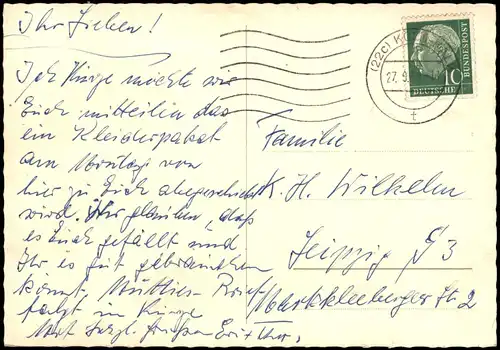 Ihr Lieben!
In Kürze möchte wir
Euch mitteilen das
ein Kleiderpaket
am Montag von
hier zu Euch abgeschickt
wird. Wir glauben, daß
es Euch gefällt und
Ihr es gut gebrauchen
könnt. Brief
folgt in Kürze
Familie
K. H. Wilhelm
Leipzig S 3
Markkleeberger Str. 2
(22c) K
27. 9.
10
DEUTSCHE
BUNDESPOST